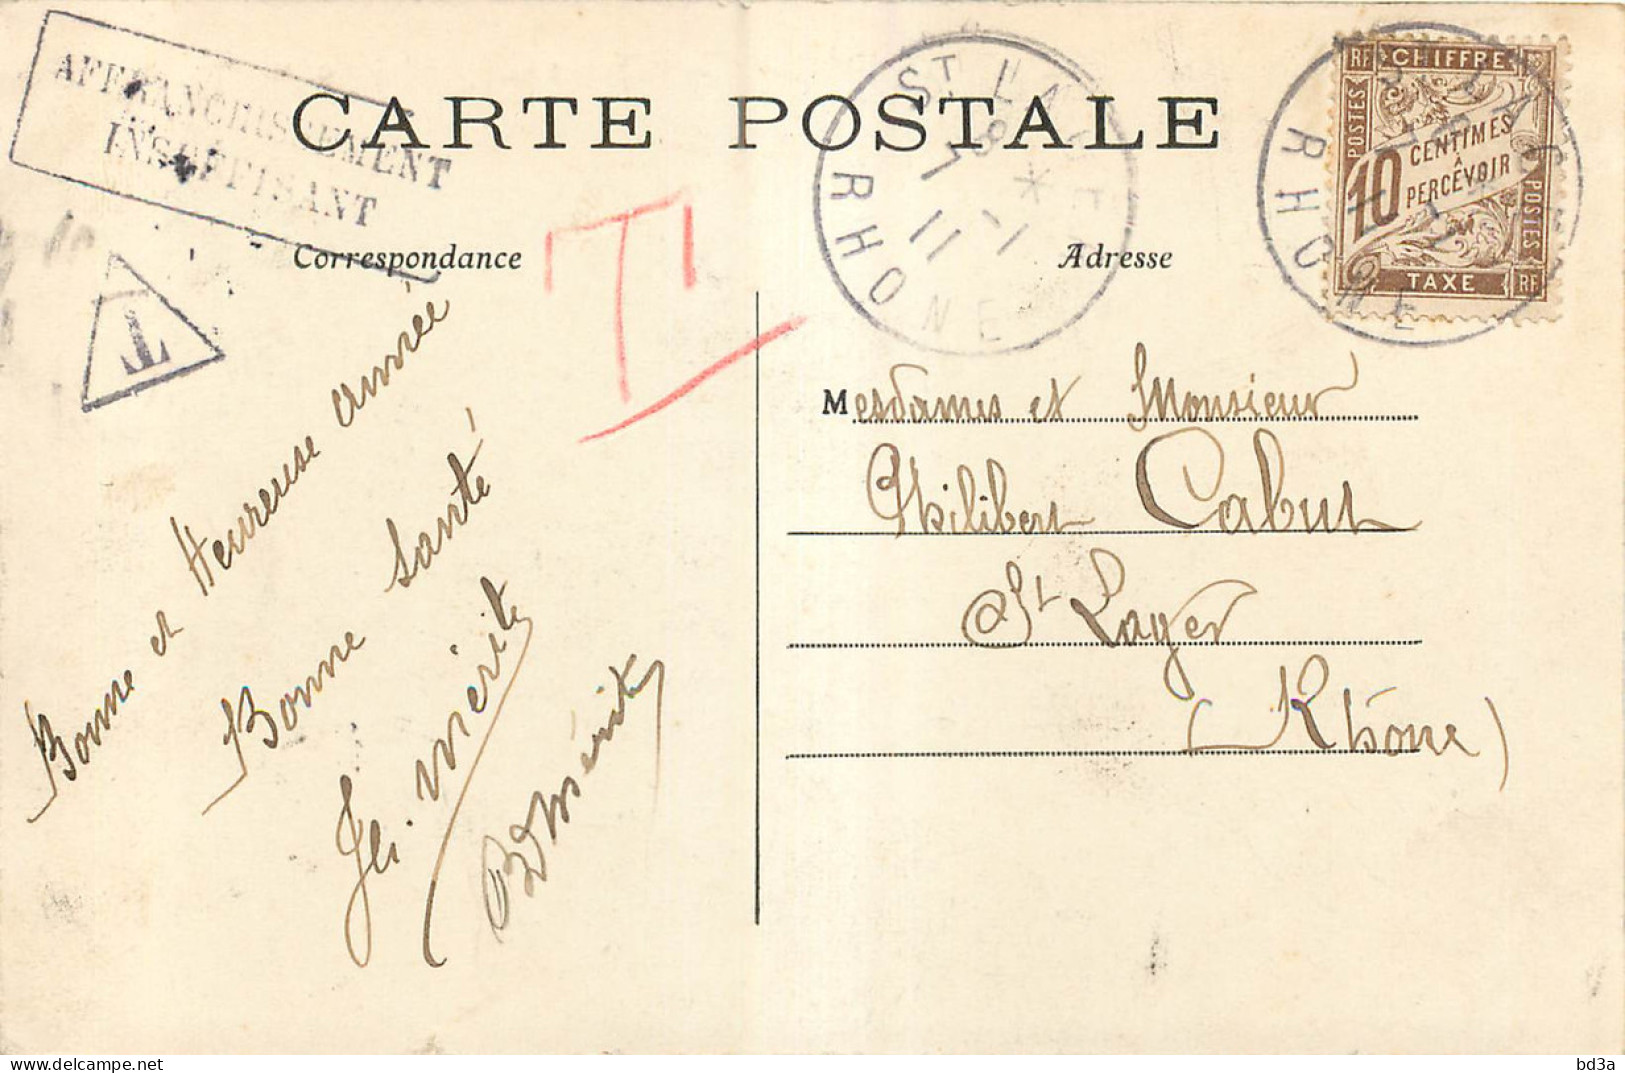 AFFRANCHISSEMENT
INSUFFISANT
T
CARTE POSTALE
Correspondance
T
Bonne et Heureuse année
Bonne Santé
Mérite
Mérite
ST LAGER
RHONE
7 8
11 -1
11
RF CHIFFRE
POSTES
10 CENTIMES
À
PERCEVOIR
POSTES
TAXE RF
ST LAGER
RHONE
Adresse
Mesdames et Monsieur
Philibert Cabut
à St Lager
(Rhône)
bd3a